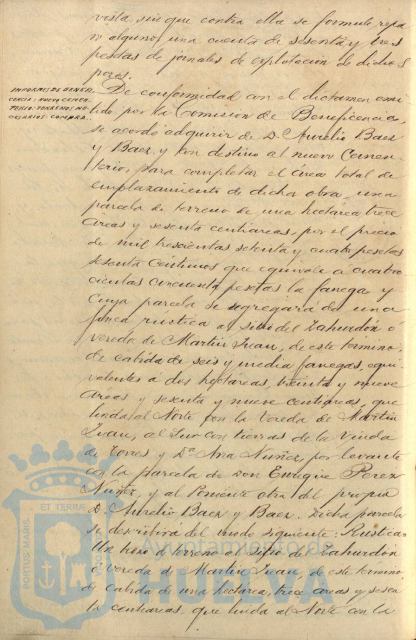 vista, sin que contra ella se formule repa
ro alguno, una cuenta de sesenta y tres
pesetas de jornales de explotación de dichos
pozos.
INFORMES DE BENEFI
CENCIA: NUEVO CEMEN
TERIO: TERRENOS NE
CESARIOS: COMPRA.
De conformidad con el dictamen emi
tido por la Comisión de Beneficencia,
se acordó adquirir de D. Aurelio Baez
y Baez, y con destino al nuevo Cemen
terio, para completar el área total de
emplazamiento de dicha obra, una
parcela de terreno de una hectárea trece
áreas y sesenta centiáreas, por el precio
de mil trescientas setenta y cuatro pesetas
sesenta céntimos que equivale a cuatro
cientas cincuenta pesetas la fanega y
cuya parcela se segregará de una
finca rústica al sitio del Zahurdón ó
vereda de Martín Juan, de este término,
de cabida de seis y media fanegas, equi
valentes a dos hectáreas, treinta y nueve
áreas y sesenta y nueve centiáreas, que
linda al Norte con la Vereda de Martín
Juan, al Sur con tierras de la Viuda
de Torres y Dª Ana Nuñez, por levante
con la parcela de don Enrique Perez
Nuñez, y al Poniente otra del propio
D. Aurelio Baez y Baez. Dicha parcela
se describirá del modo siguiente: Rústica:
Un trozo de terreno al sitio del Zahurdón
ó vereda de Martín Juan, de este término
de cabida de una hectárea, trece áreas y sesen
ta centiáreas, que linda al Norte con la
PORTUS MARIS ET TERRAE
Ayuntamiento de
HUELVA